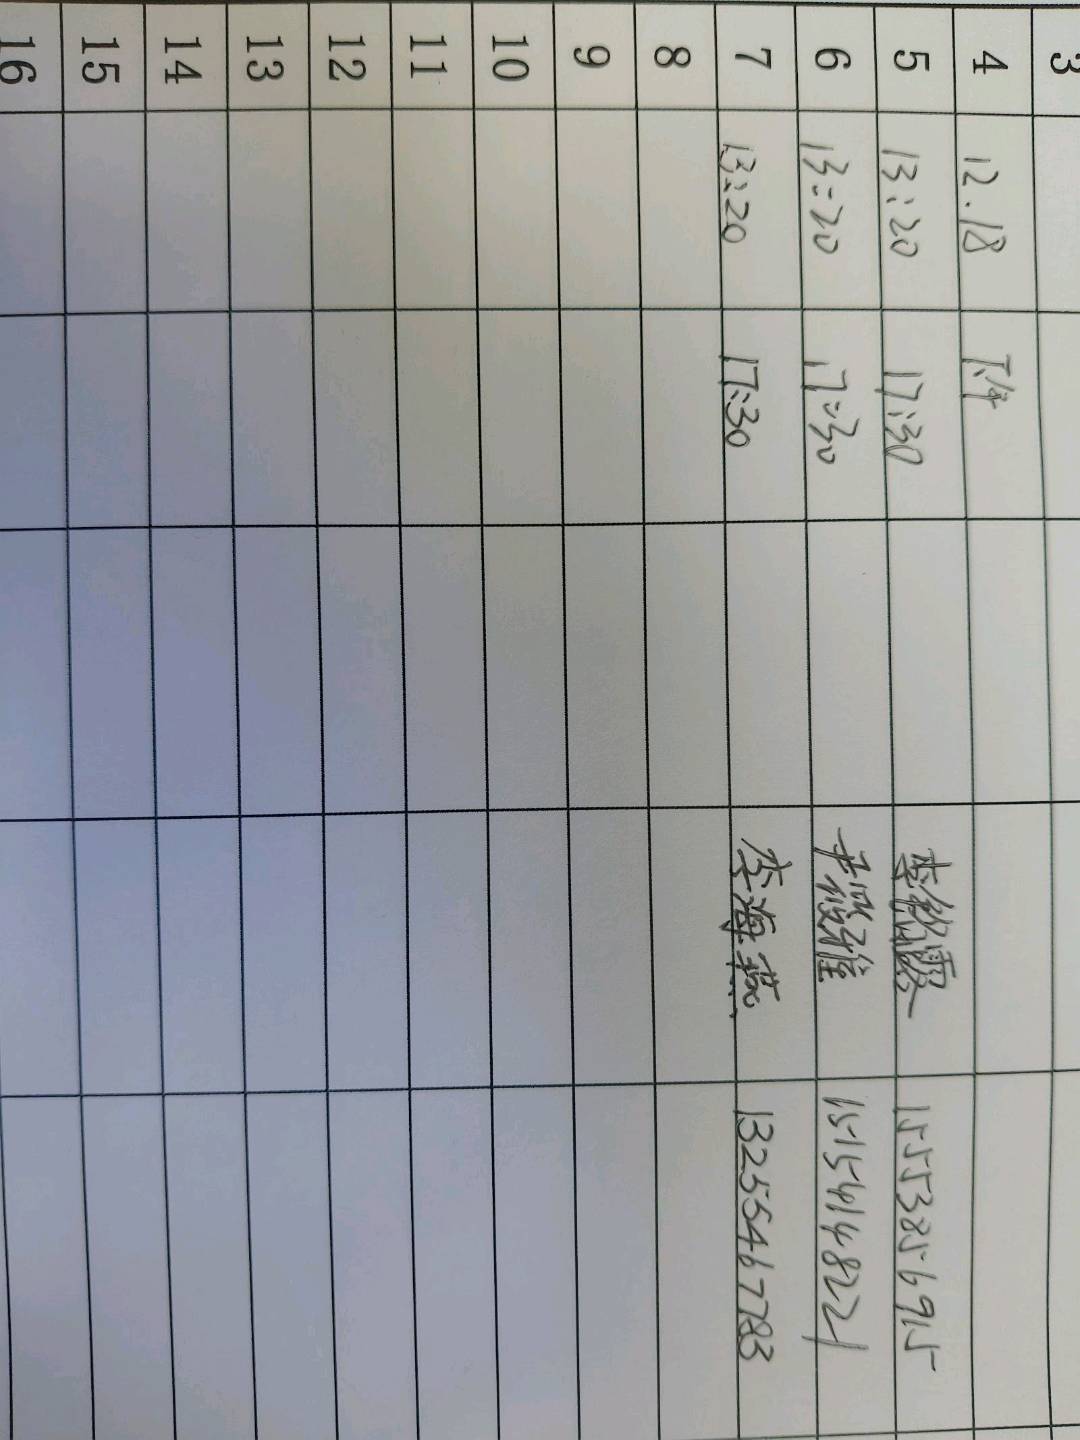 3
4 12.18 下午
5 13:20 17:30 李铭露 15553856915
6 13:20 17:30 15154148221
7 13:20 17:30 李海燕 13255467783
8
9
10
11
12
13
14
15
16